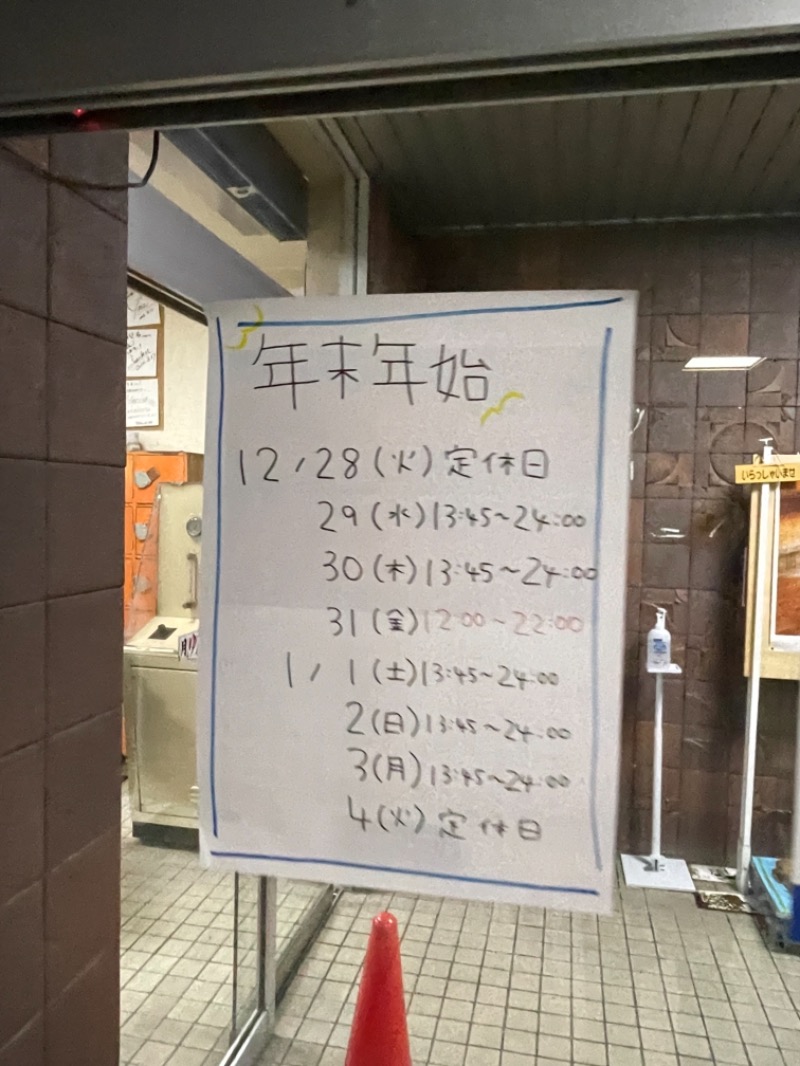 年末年始
12/28(火)定休日
29(水)13:45~24:00
30(木)13:45~24:00
31(金)12:00~22:00
1/1(土)13:45~24:00
2(日)13:45~24:00
3(月)13:45~24:00
4(火)定休日
いらっしゃいませ